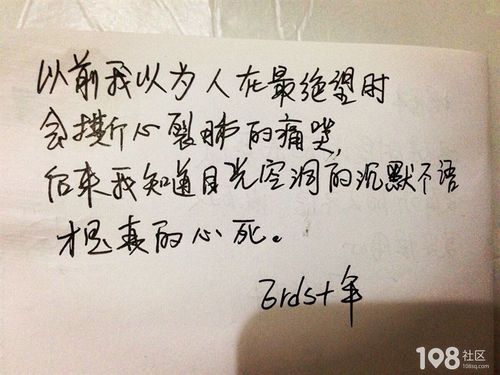 以前我以为人在最绝望时
会撕心裂肺的痛哭,
后来我知道目光空洞的沉默不语
才是真的心死。
年
108社区
108sq.com